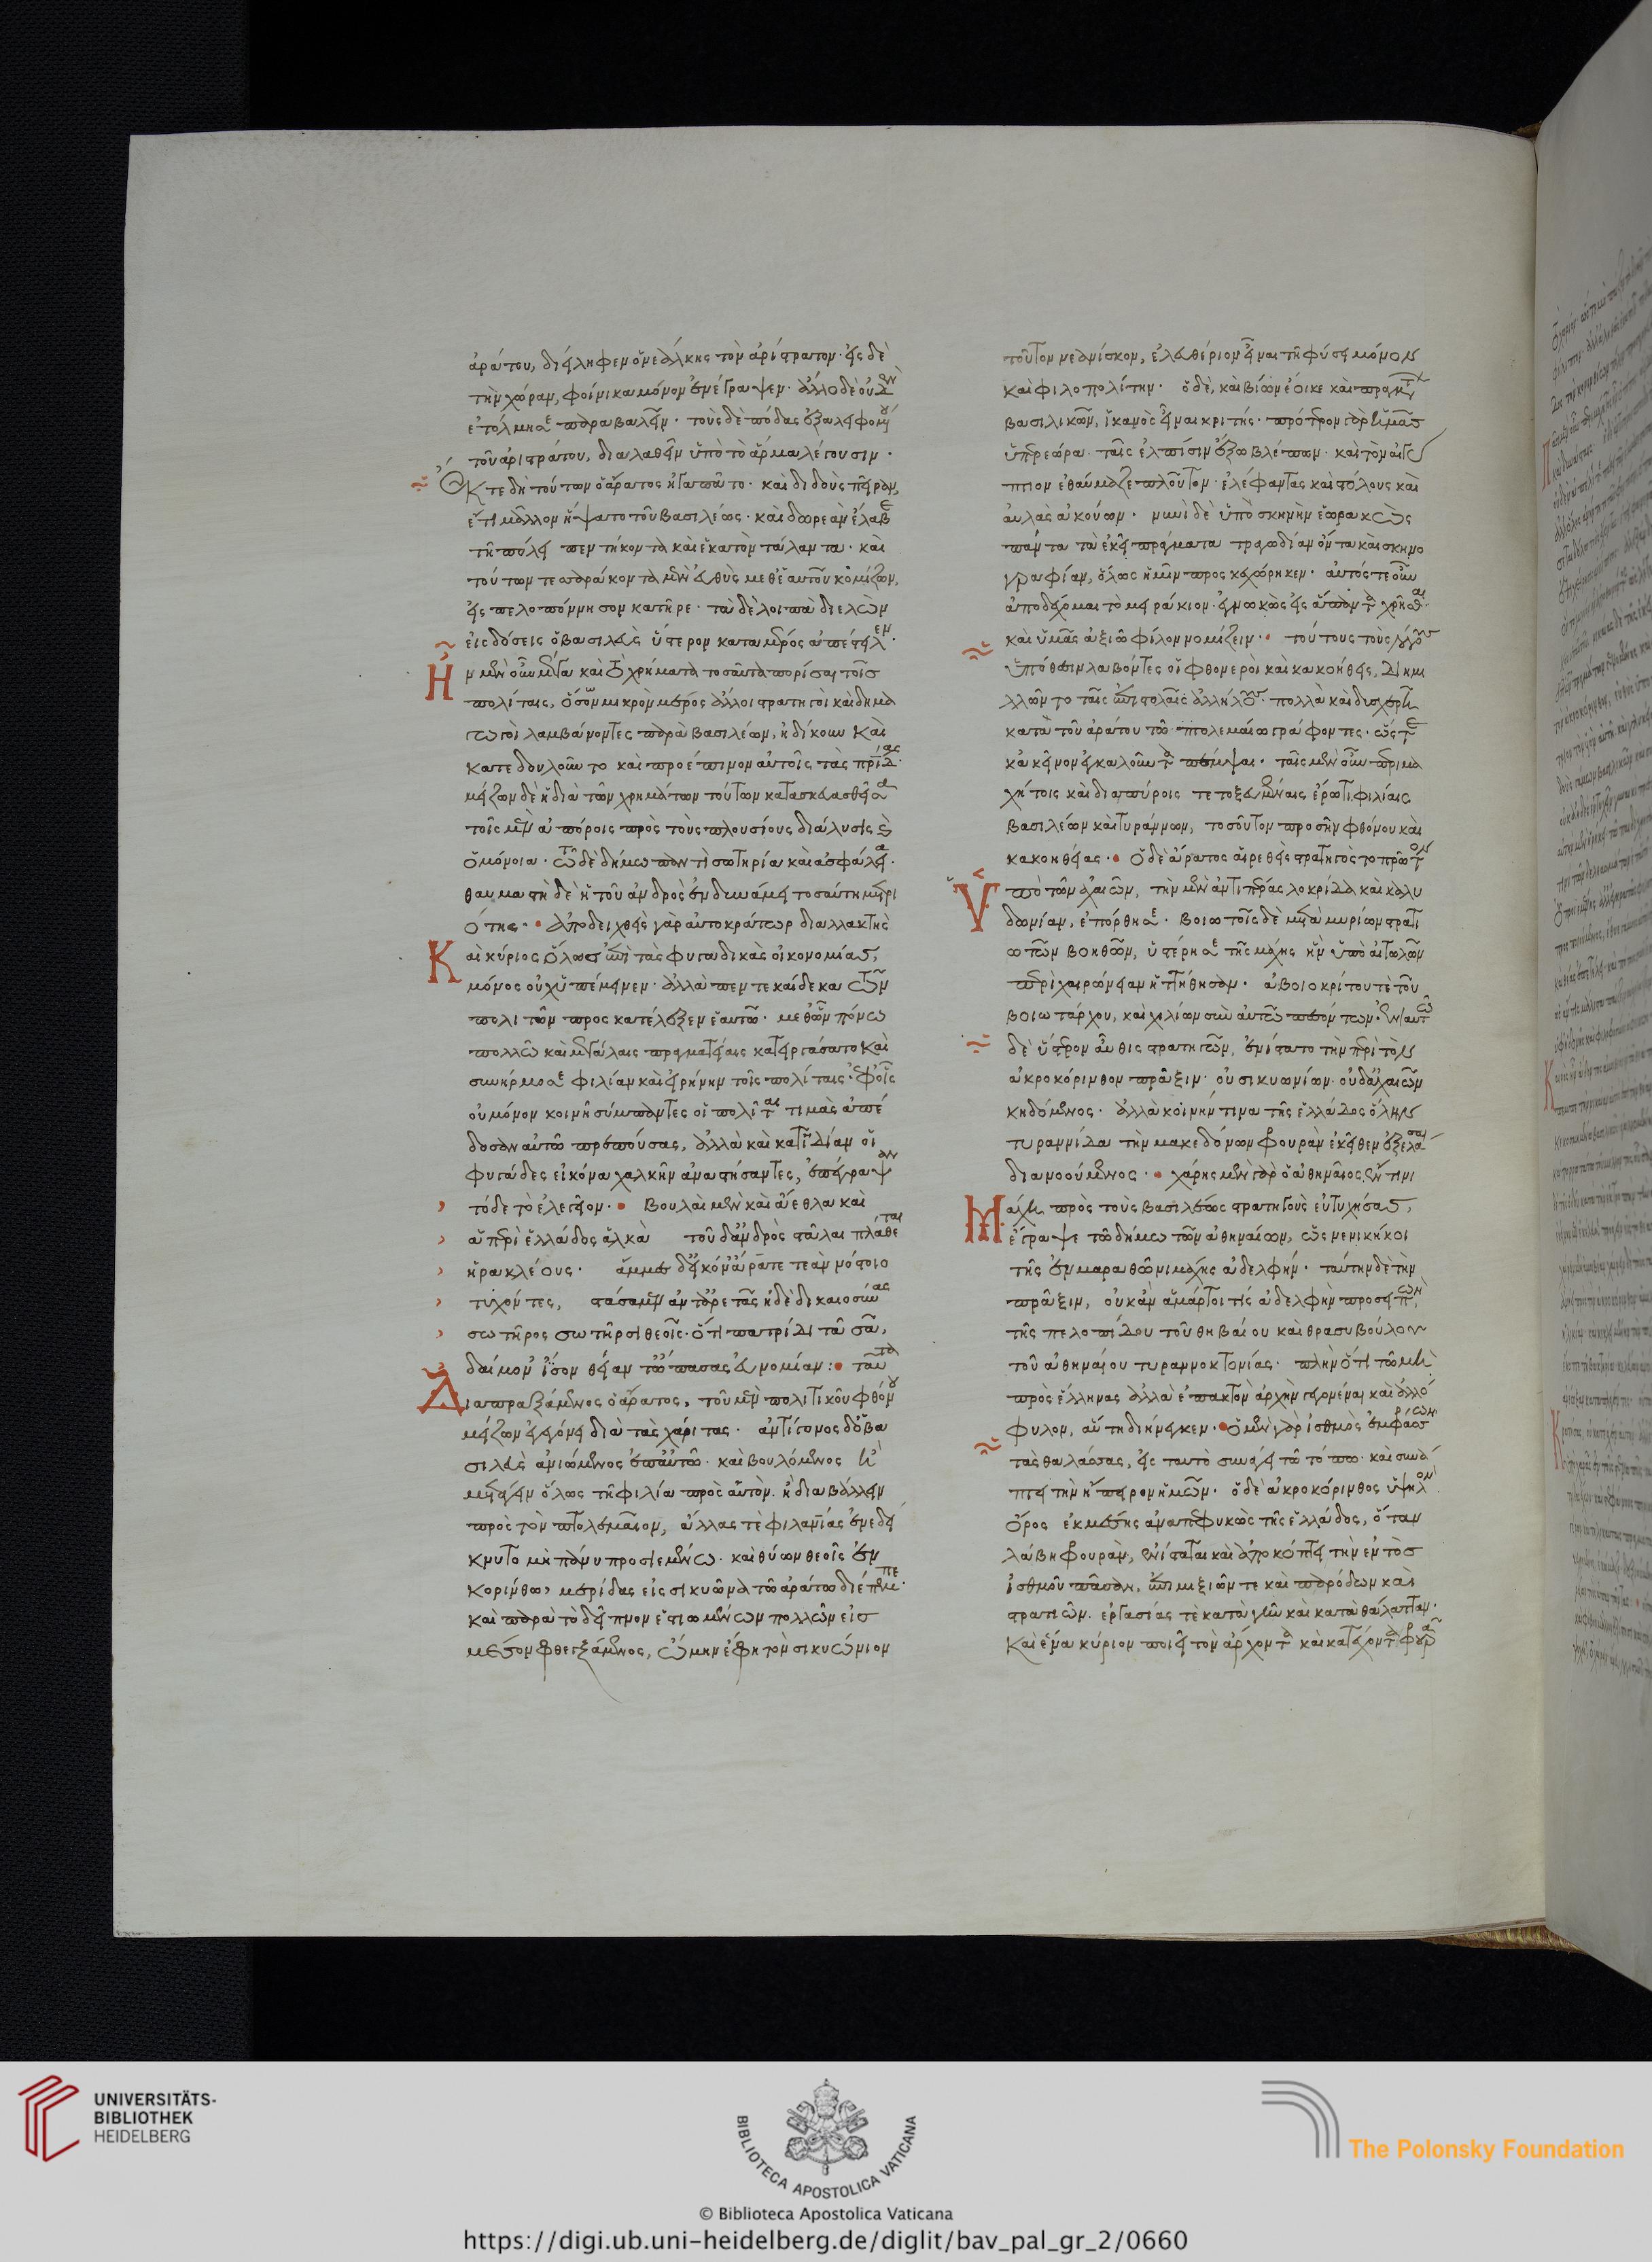 ἀράτου, διήλειφεν ὁ νεάλκης τὸν ἀρίστρατον· εἰς δὲ
τὴν χώραν, φοίνικα μόνον ἐνέγραψεν· ἄλλο δὲ οὐδὲν
ἐτόλμησε παραβαλεῖν· τοὺς δὲ πόδας ἐξαλειφομένου
τοῦ ἀριστράτου, διαλαθεῖν ὑπὸ τὸ ἅρμα λέγουσιν·
Ἔκ τε δὴ τούτων ὁ ἄρατος ἠγαπᾶτο· καὶ διδοὺς πεῖραν,
ἔτι μᾶλλον ἥψατο τοῦ βασιλέως· καὶ δωρεὰν ἔλαβε
τῇ πόλει πεντήκοντα καὶ ἑκατὸν τάλαντα· καὶ
τούτων τεσσαράκοντα μὲν εὐθὺς μεθ' ἑαυτοῦ κομίζων,
εἰς πελοπόννησον κατῆρε· τὰ δὲ λοιπὰ διελὼν
εἰς δόσεις ὁ βασιλεὺς ὕστερον κατὰ μέρος ἀπέστειλεν·
Ἦν μὲν οὖν μέγα καὶ τὸ χρήματα τοσαῦτα πορίσαι τοῖς
πολίταις, ὅσων μικρὸν μέρος ἄλλοι στρατηγοὶ καὶ δημα
γωγοὶ λαμβάνοντες παρὰ βασιλέων, ἠδίκουν καὶ
κατεδουλοῦντο καὶ προέπινον αὐτοῖς τὰς πατρίδας·
μείζων δὲ ἡ διὰ τῶν χρημάτων τούτων κατασκευασθεῖσα
τοῖς μὲν ἀπόροις πρὸς τοὺς πλουσίους διάλυσις καὶ
ὁμόνοια· τῷ δὲ δήμῳ παντὶ σωτηρία καὶ ἀσφάλεια·
θαυμαστὴ δὲ ἡ τοῦ ἀνδρὸς ἐν δυνάμει τοσαύτῃ μετρι
ότης· ἀποδειχθεὶς γὰρ αὐτοκράτωρ διαλλακτὴς
Καὶ κύριος ὅλως ἐπὶ τὰς φυγαδικὰς οἰκονομίας,
μόνος οὐχ ὑπέμεινεν· ἀλλὰ πεντεκαίδεκα τῶν
πολιτῶν προσκατέλεξεν ἑαυτῷ· μεθ' ὧν πόνῳ
πολλῷ καὶ μεγάλαις πραγματείαις κατειργάσατο καὶ
συνήρμοσε φιλίαν καὶ εἰρήνην τοῖς πολίταις· ἐφ' οἷς
οὐ μόνον κοινῇ σύμπαντες οἱ πολῖται τιμὰς ἀπέ
δοσαν αὐτῷ πρεπούσας, ἀλλὰ καὶ κατ' ἰδίαν οἱ
φυγάδες εἰκόνα χαλκῆν ἀναστήσαντες, ἐπέγραψαν
τόδε τὸ ἐλεγεῖον· βουλαὶ μὲν καὶ ἄεθλα καὶ
ἁ περὶ ἑλλάδος ἀλκὰ τοῦδ' ἀνδρὸς στάλαις πλάθεται
ἡρακλέους· ἄμμες δ' εἰκόν' ἄρατε τεὰν νόστοιο
τυχόντες, στάσαμεν ἀντ' ἀρετᾶς ἠδὲ δικαιοσύνας
σωτῆρος σωτῆρσι θεοῖς· ὅτι πατρίδι τᾷ σᾷ,
δαίμον' ἴσον θείαν τ' ὤπασας εὐνομίαν: ταῦτα
Διαπραξάμενος ὁ ἄρατος, τοῦ μὲν πολιτικοῦ φθόνου
μείζων ἐγεγόνει διὰ τὰς χάριτας· ἀντίγονος δ' ὁ βα
σιλεὺς ἀνιώμενος ἐπ' αὐτῷ· καὶ βουλόμενος ἢ
μετάγειν ὅλως τῇ φιλίᾳ πρὸς αὑτὸν· ἢ διαβάλλειν
πρὸς τὸν πτολεμαῖον, ἄλλας τε φιλανθρωπίας ἐνεδεί
κνυτο μὴ πάνυ προσιεμένῳ· καὶ θύων θεοῖς ἐν
κορίνθῳ, μερίδας εἰς σικυῶνα τῷ ἀράτῳ διέπεμπε·
καὶ παρὰ τὸ δεῖπνον ἑστιωμένων πολλῶν εἰς
μέσον φθεγξάμενος, ᾤμην ἔφη τὸν σικυώνιον
τοῦτον νεανίσκον, ἐλευθέριον εἶναι τῇ φύσει μόνον
καὶ φιλοπολίτην· ὁ δὲ, καὶ βίων ἔοικε καὶ πραγμάτων
βασιλικῶν, ἱκανὸς εἶναι κριτής· πρότερον γὰρ ἡμᾶς
ὑπερεώρα· ταῖς ἐλπίσιν ἔξω βλέπων· καὶ τὸν αἰγύ
πτιον ἐθαύμαζε πλοῦτον· ἐλέφαντας καὶ στόλους καὶ
αὐλὰς ἀκούων· νυνὶ δὲ ὑπὸ σκηνὴν ἑωρακὼς
πάντα τὰ ἐκεῖ πράγματα τραγῳδίαν ὄντα καὶ σκηνο
γραφίαν, ὅλως ἡμῖν προσκεχώρηκεν· αὐτός τε οὖν
ἀποδέχομαι τὸ μειράκιον· ἐγνωκὼς εἰς ἅπαντα χρῆσθαι·
καὶ ὑμᾶς ἀξιῶ φίλον νομίζειν· τούτους τοὺς λόγους
ὑπόθεσιν λαβόντες οἱ φθονεροὶ καὶ κακοήθεις, διημι
λλῶντο ταῖς ἐπιστολαῖς ἀλλήλοις· πολλὰ καὶ δυσχερῆ
κατὰ τοῦ ἀράτου τῷ πτολεμαίῳ γράφοντες· ὥστε
κἀκεῖνον ἐγκαλοῦντα πέμψαι· ταῖς μὲν οὖν περιμα
χήτοις καὶ διαπύροις τετοξευμέναις ἔρωτι φιλίαις
βασιλέων καὶ τυράννων, τοσοῦτον προσῆν φθόνου καὶ
κακοηθείας· ὁ δὲ ἄρατος αἱρεθεὶς στρατηγὸς τοπρῶτον
Ὑπὸ τῶν ἀχαιῶν, τὴν μὲν ἀντιπέρας λοκρίδα καὶ καλυ
δωνίαν, ἐπόρθησε· βοιωτοῖς δὲ μετὰ μυρίων στρατι
ωτῶν βοηθῶν, ὑστέρησε τῆς μάχης ἣν ὑπὸ αἰτωλῶν
περὶ χαιρώνειαν ἡττήθησαν· ἀβοιοκρίτου τε τοῦ
βοιωτάρχου, καὶ χιλίων σὺν αὐτῷ πεσόντων· ἐνιαυτῷ
δὲ ὕστερον αὖθις στρατηγῶν, ἐνίστατο τὴν περὶ τὸν
ἀκροκόρινθον πρᾶξιν· οὐ σικυωνίων· οὐδ' ἀχαιῶν
κηδόμενος· ἀλλὰ κοινήν τινα τῆς ἑλλάδος ὅλης
τυραννίδα τὴν μακεδόνων φρουρὰν ἐκεῖθεν ἐξελάσαι
διανοούμενος· χάρης μὲν γὰρ ὁ ἀθηναῖος ἔν τινι
Μάχῃ πρὸς τοὺς βασιλέως στρατηγοὺς εὐτυχήσας,
ἔγραψε τῷ δήμῳ τῶν ἀθηναίων, ὡς νενικήκοι
τῆς ἐν μαραθῶνι μάχης ἀδελφήν· ταύτην δὲ τὴν
πρᾶξιν, οὐκ ἂν ἁμάρτοι τίς ἀδελφὴν προσειπών,
τῆς πελοπίδου τοῦ θηβαίου καὶ θρασυβούλου
τοῦ ἀθηναίου τυραννοκτονίας· πλὴν ὅτι τῷ μὴ
πρὸς ἕλληνας ἀλλὰ ἐπακτὸν ἀρχὴν γενομένην καὶ ἀλλό
φυλον, αὕτη διήνεγκεν· ὁ μὲν γὰρ ἰσθμὸς ἐμφράσσων
τὰς θαλάσσας, εἰς ταυτὸ συνάγει τῷ τόπῳ· καὶ συνά
πτει τὴν ἤπειρον ἡμῶν· ὁ δὲ ἀκροκόρινθος ὑψηλὸν
ὄρος ἐκ μέσης ἀναπεφυκὼς τῆς ἑλλάδος, ὅταν
λάβῃ φρουράν, ἐνίσταται καὶ ἀποκόπτει τὴν ἐντὸς
ἰσθμοῦ πᾶσαν, ἐπιμιξιῶν τε καὶ παρόδων καὶ
στρατιῶν· ἐργασίας τε κατὰ γῆν καὶ κατὰ θάλατταν·
καὶ ἕνα κύριον ποιεῖ τὸν ἄρχοντα καὶ κατέχοντα φρουρᾷ
UNIVERSITÄTS-
BIBLIOTHEK
HEIDELBERG
BIBLIOTECA APOSTOLICA VATICANA
The Polonsky Foundation
© Biblioteca Apostolica Vaticana
https://digi.ub.uni-heidelberg.de/diglit/bav_pal_gr_2/0660